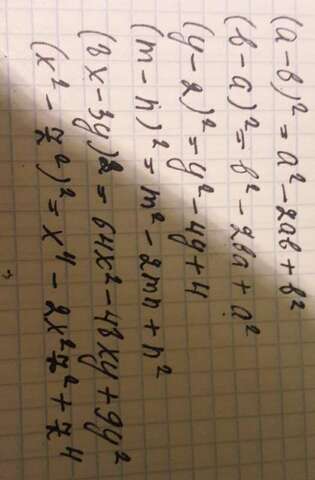 (a-b)² = a² - 2ab + b²
(b-a)² = b² - 2ba + a²
(y-2)² = y² - 4y + 4
(m-n)² = m² - 2mn + n²
(8x-3y)² = 64x² - 48xy + 9y²
(x² - z²)² = x⁴ - 2x²z² + z⁴